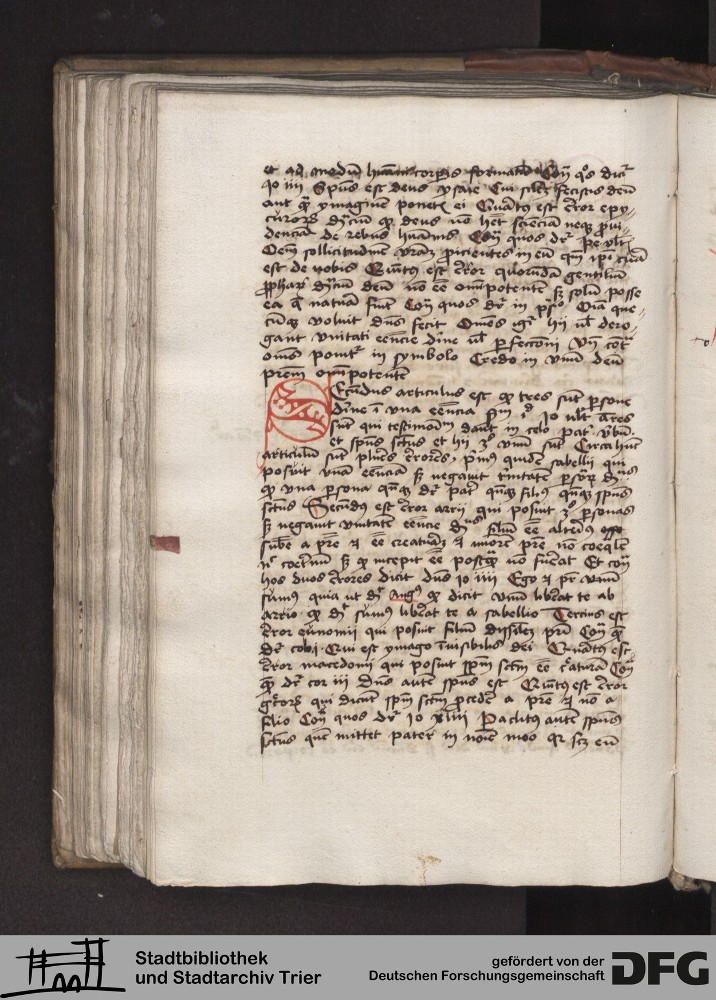 et ad modum humani corporis formatum Contra quos dicitur
Io iiii Spiritus est deus ysaie Cui similem fecistis deum
aut quam ymaginem ponetis ei Quartus est error epy
curorum dicencium quod deus non habet scienciam neque provi
denciam de rebus humanis Contra quos dicitur pe ult
Omnem sollicitudinem vestram proicientes in eum quoniam ipsi cura
est de vobis Quintus est error quorundam gentilium
philosophorum dicencium deum non esse omnipotentem sed solum posse
ea que naturalia sunt Contra quos dicitur in psalmo Omnia que
cumque voluit dominus fecit Omnes igitur hii vel dero
gant unitati essencie divine vel perfeccioni Unde contra
omnes ponitur in symbolo Credo in unum deum
patrem omnipotentem
Secundus articulus est quod tres sunt persone
divine in una essencia secundum Io ult Tres
sunt qui testimonium dant in celo pater verbum
et spiritus sanctus et hii tres unum sunt Circa hunc
articulum sunt plures errores primus quidem sabellii qui
posuit unam essenciam sed negavit trinitatem personarum dicens
quod una persona quandoque dicitur pater quandoque filius quandoque spiritus
sanctus Secundus est error arrii qui posuit tres personas
sed negavit unitatem essencie dicens filium esse alterius
substancie a patre et esse creaturam et minorem patre non coequalem
nec coeternum sed quod incepit esse postquam non fuerat Et contra
hos duos errores dicit dominus Io iiii Ego et pater unum
sumus quia ut dicit Augustinus quod dicit unum liberat te ab
arrio quod dicit sumus liberat te a sabellio Tercius est
error eunomii qui posuit filium dissimilem patri Contra quem
dicitur col i Qui est ymago invisibilis dei Quartus est
error macedonii qui posuit spiritum sanctum esse creaturam Contra
quem dicitur cor iii Dominus autem spiritus est Quintus est error
grecorum qui dicunt spiritum sanctum procedere a patre et non a
filio Contra quos dicitur Io xliii Paclitus autem spiritus
sanctus quem mittet pater in nomine meo quia scilicet eum
Stadtbibliothek
und Stadtarchiv Trier
gefördert von der
Deutschen Forschungsgemeinschaft
DFG